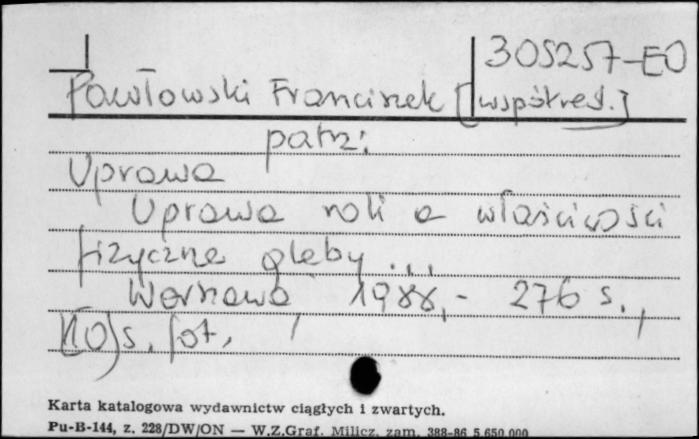 305257-EO
Pawłowski Franciszek [współred.]
patrz:
Uprawa
Uprawa roli a właściwości
fizyczne gleby...
Warszawa 1988,- 276 s.,
[10]s. fot.
Karta katalogowa wydawnictw ciągłych i zwartych.
Pu-B-144, z. 228/DW/ON — W.Z.Graf. Milicz, zam. 388-86 5 650 000